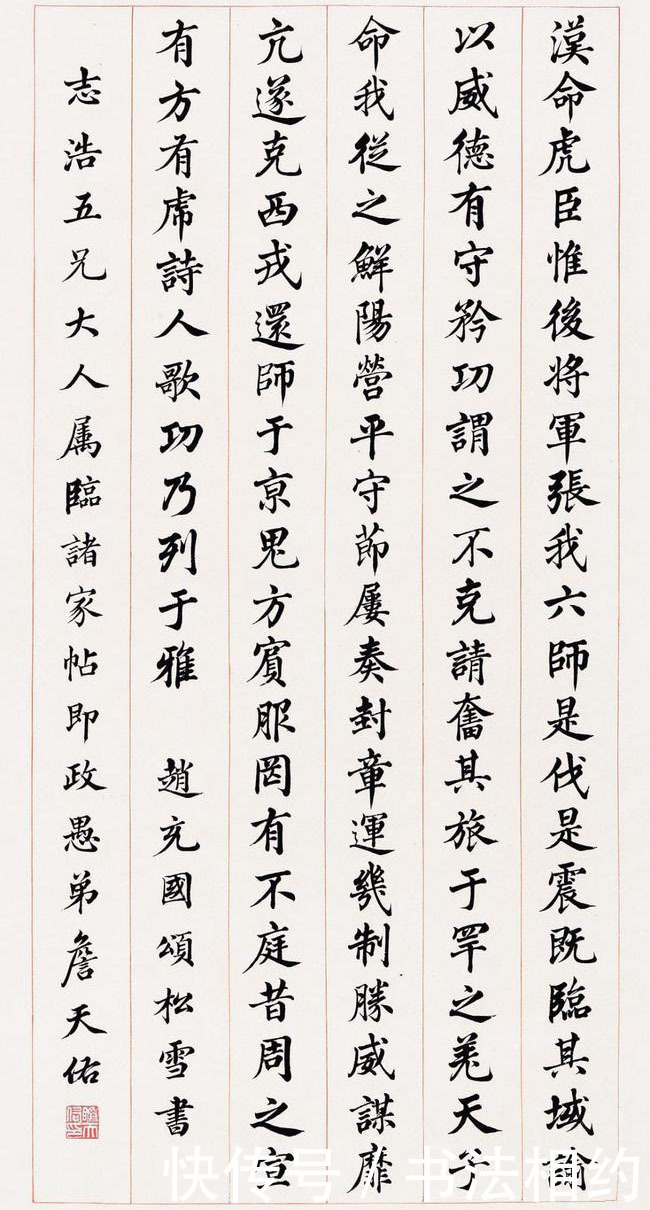 漢命虎臣惟後将軍張我六師是伐是震既臨其域諭
以威德有守矜功謂之不克請奮其旅于罕之羌天子
命我從之鮮陽營平守節屢奏封章運幾制勝威謀靡
亢遂克西戎還師于京鬼方賓服罔有不庭昔周之宣
有方有虎詩人歌功乃列于雅 趙充國頌松雪書
志浩五兄大人属臨諸家帖即政愚弟詹天佑
快传号 / 书法相约